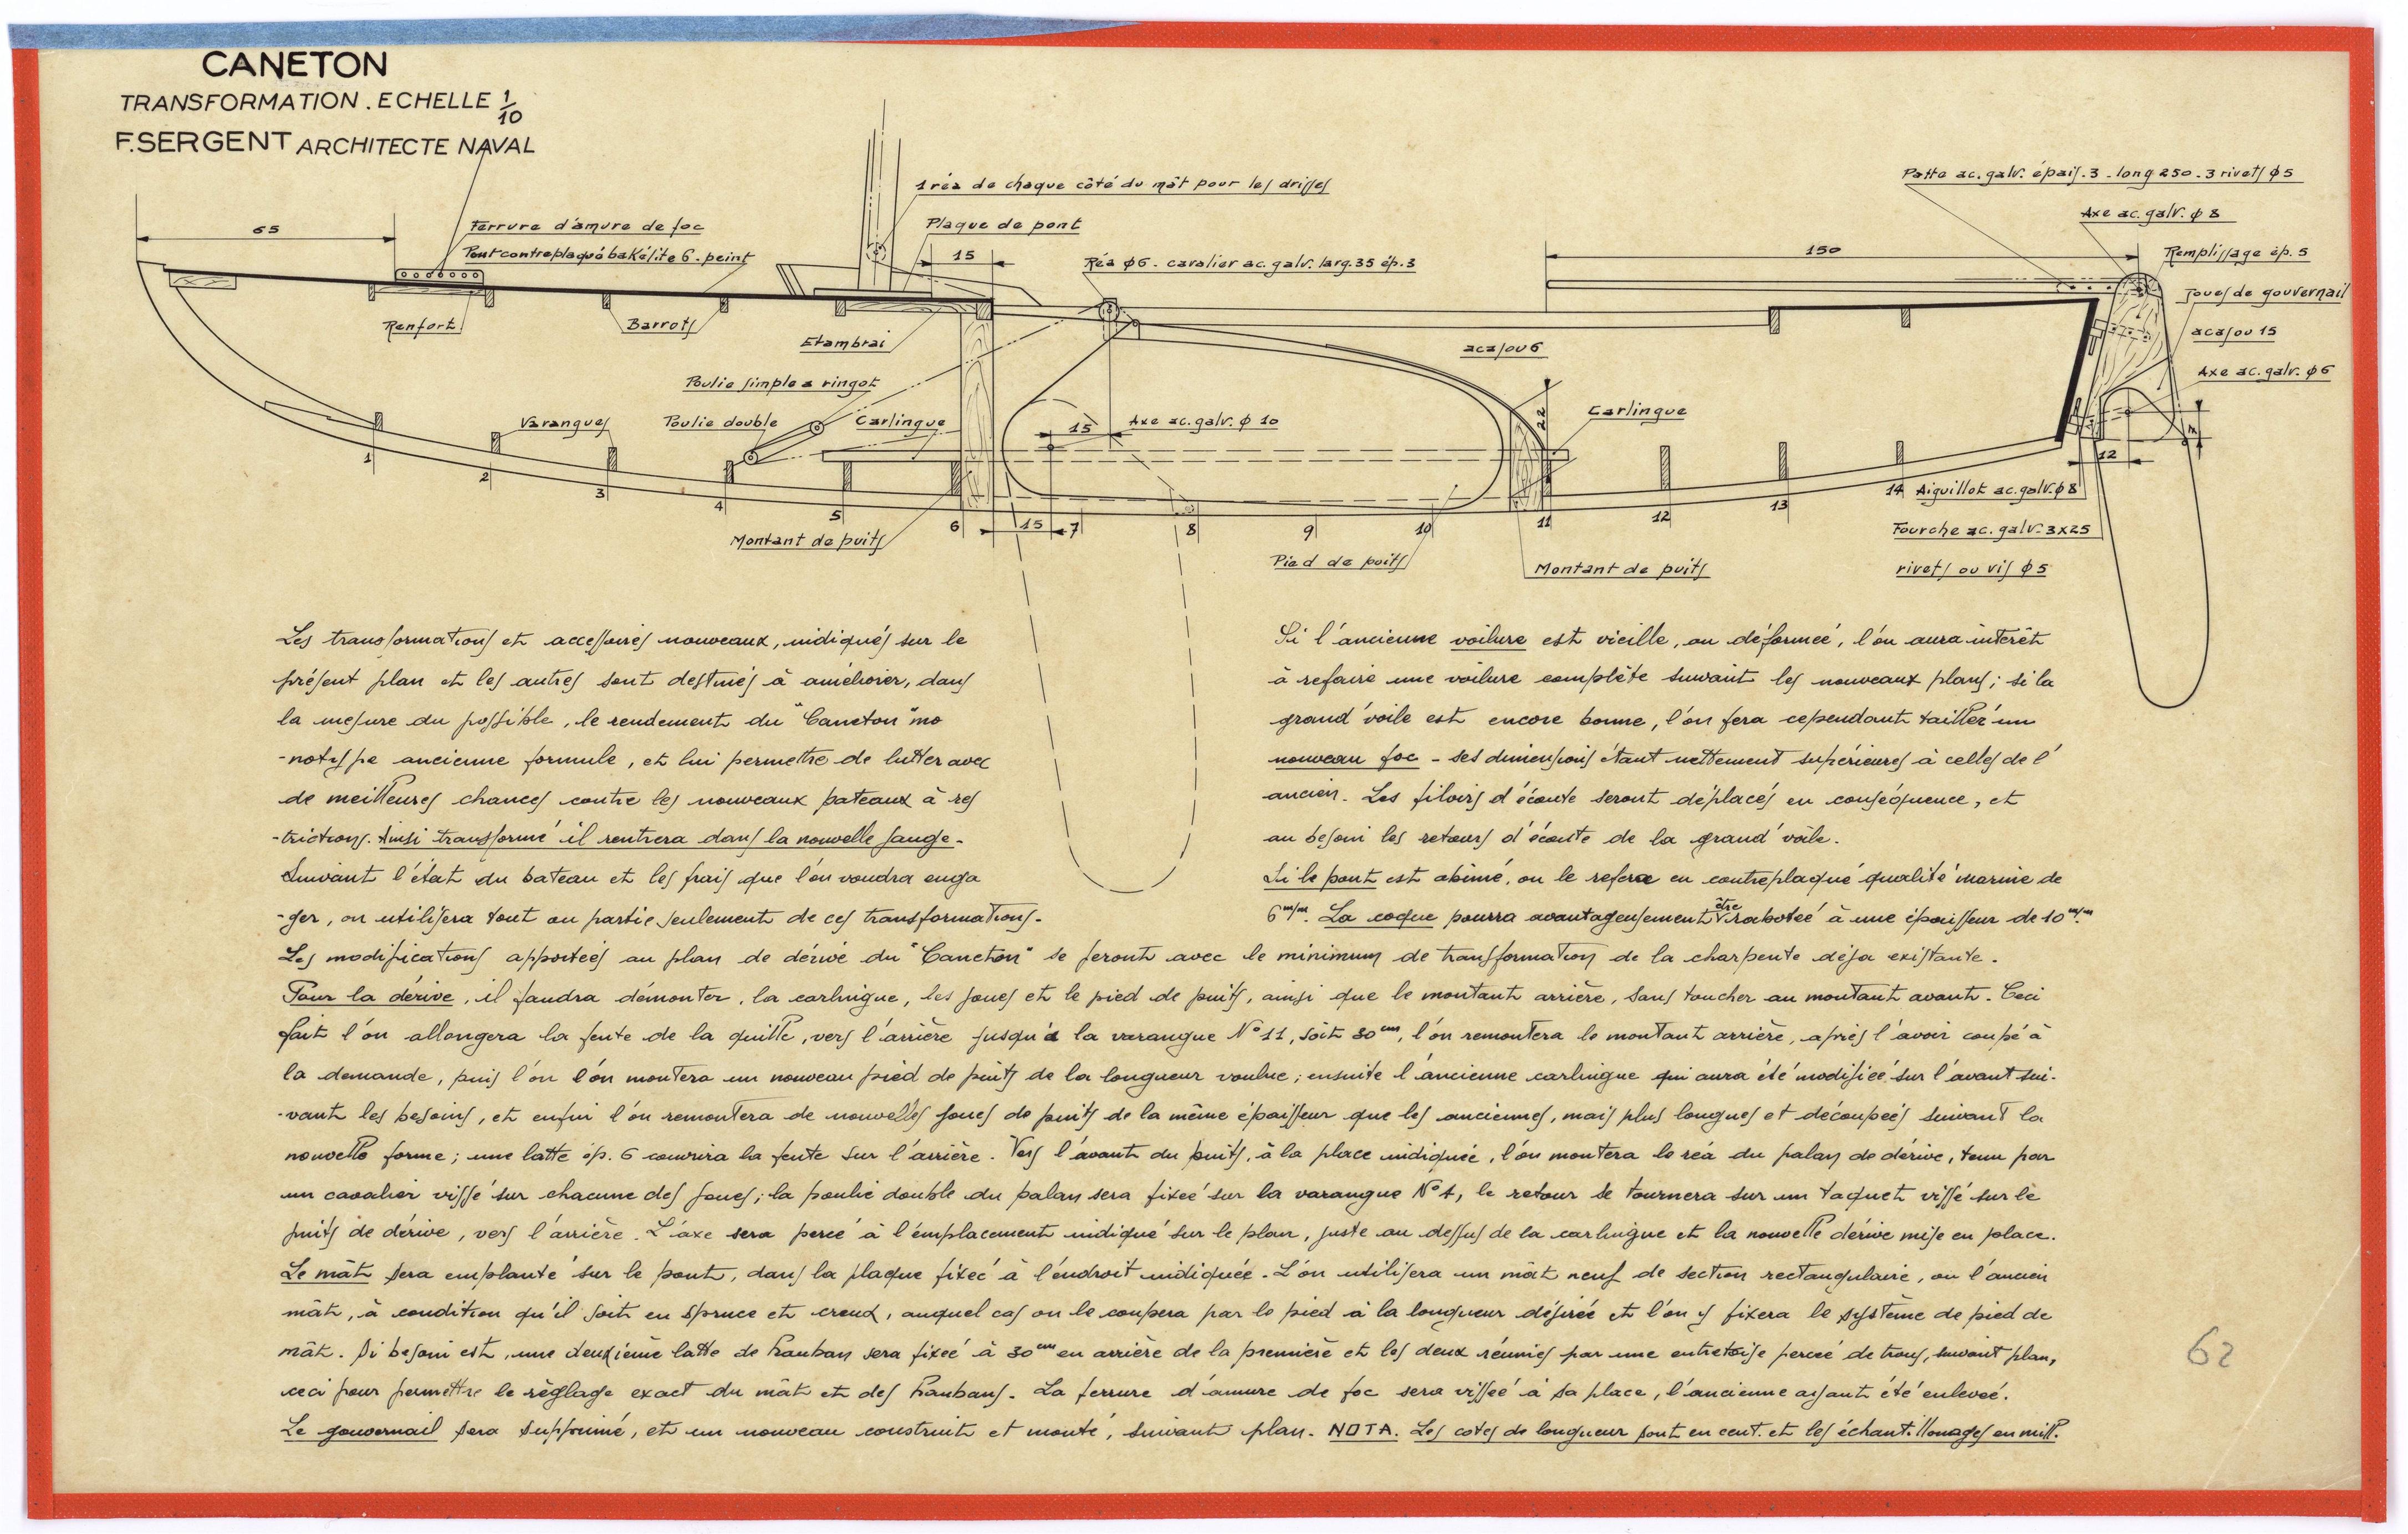 CANETON
TRANSFORMATION. ECHELLE 1/10
F. SERGENT ARCHITECTE NAVAL
65
Ferrure d'amure de foc
Pont contreplaqué bakélite 6 - peint
1 réa de chaque côté du mât pour les drisses
Plaque de pont
15
Réa φ6 - cavalier ac. galv. larg. 35 ép. 3
Patte ac. galv. épais. 3 - long 250 - 3 rivets φ5
Axe ac. galv. φ 8
150
Remplissage ép. 5
Joues de gouvernail
acajou 15
Axe ac. galv. φ6
Renfort
Barrots
Etambrai
acajou 6
Poulie simple a ringot
Varangues
Poulie double
Carlingue
15
Axe ac. galv. φ 10
Carlingue
12
1
2
3
4
5
6
15
7
8
9
10
11
12
13
14
Aiguillot ac. galv. φ8
Fourche ac. galv. 3x25
rivets ou vis φ5
Montant de puits
Pied de puits
Montant de puits
Les transformations et accessoires nouveaux, indiqués sur le
présent plan et les autres sont destinés à améliorer, dans
la mesure du possible, le rendement du "Caneton" mo
-notype ancienne formule, et lui permettre de lutter avec
de meilleures chances contre les nouveaux bateaux à res
-trictions. Ainsi transformé il rentrera dans la nouvelle jauge.
Suivant l'état du bateau et les frais que l'on voudra enga
-ger, on utilisera tout ou partie seulement de ces transformations.
Si l'ancienne voilure est vieille, ou déformée, l'on aura intérêt
à refaire une voilure complète suivant les nouveaux plans; si la
grand'voile est encore bonne, l'on fera cependant tailler un
nouveau foc - ses dimensions étant nettement supérieures à celles de l'
ancien. Les filoirs d'écoute seront déplacés en conséquence, et
au besoin les retours d'écoute de la grand'voile.
Si le pont est abimé, on le refera en contreplaqué qualité marine de
6 m/m. La coque pourra avantageusement être rabotée à une épaisseur de 10 m/m.
Les modifications apportées au plan de dérive du "Caneton" se feront avec le minimum de transformation de la charpente déja existante.
Pour la dérive, il faudra démonter, la carlingue, les joues et le pied de puits, ainsi que le montant arrière, sans toucher au montant avant. Ceci
fait l'on allongera la fente de la quille, vers l'arrière jusqu'à la varangue N° 11, soit 30 cm, l'on remontera le montant arrière, après l'avoir coupé à
la demande, puis l'on l'on montera un nouveau pied de puits de la longueur voulue; ensuite l'ancienne carlingue qui aura été modifiée sur l'avant sui-
-vant les besoins, et enfin l'on remontera de nouvelles joues de puits de la même épaisseur que les anciennes, mais plus longues et découpées suivant la
nouvelle forme; une latte ép. 6 couvrira la fente sur l'arrière. Vers l'avant du puits, à la place indiquée, l'on montera le réa du palan de dérive, tenu par
un cavalier vissé sur chacune des joues; la poulie double du palan sera fixée sur la varangue N° 4, le retour se tournera sur un taquet vissé sur le
puits de dérive, vers l'arrière. L'axe sera percé à l'emplacement indiqué sur le plan, juste au dessus de la carlingue et la nouvelle dérive mise en place.
Le mât sera emplanté sur le pont, dans la plaque fixée à l'endroit indiquée. L'on utilisera un mât neuf de section rectangulaire, ou l'ancien
mât, à condition qu'il soit en spruce et creux, auquel cas on le coupera par le pied à la longueur désirée et l'on y fixera le système de pied de
mât. Si besoin est, une deuxième latte de hauban sera fixée à 30 cm en arrière de la première et les deux réunies par une entretoise percée de trous, suivant plan,
ceci pour permettre le règlage exact du mât et des haubans. La ferrure d'amure de foc sera vissée à sa place, l'ancienne ayant été enlevée.
Le gouvernail sera supprimé, et un nouveau construit et monté, suivant plan. NOTA. Les cotes de longueur sont en cent. et les échantillonages en mill.
62